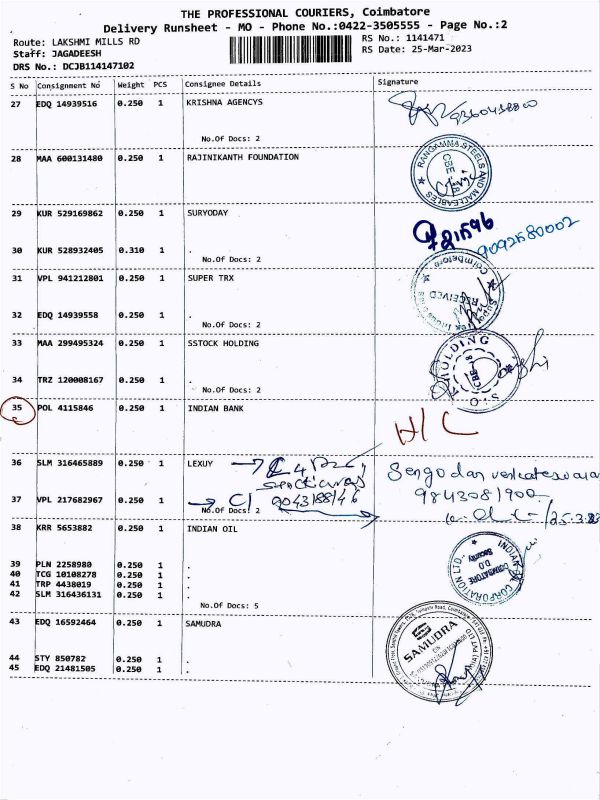 THE PROFESSIONAL COURIERS, Coimbatore
Delivery Runsheet - MO - Phone No.:0422-3505555 - Page No.:2
Route: LAKSHMI MILLS RD
RS No.: 1141471
Staff: JAGADEESH
RS Date: 25-Mar-2023
DRS No.: DCJB114147102
S No Consignment No Weight PCS Consignee Details Signature
27 EDQ 14939516 0.250 1 KRISHNA AGENCYS
No.Of Docs: 2
28 MAA 600131480 0.250 1 RAJINIKANTH FOUNDATION
RANGAMMA STEELS AND MALLEABLES
CBE
29 KUR 529169862 0.250 1 SURYODAY
9092580002
30 KUR 528932405 0.310 1 .
No.Of Docs: 2
31 VPL 941212801 0.250 1 SUPER TRX
Coimbatore
RECEIVED
32 EDQ 14939558 0.250 1 .
No.Of Docs: 2
33 MAA 299495324 0.250 1 SSTOCK HOLDING
HOLDING
34 TRZ 120008167 0.250 1 .
No.Of Docs: 2
35 POL 4115846 0.250 1 INDIAN BANK
36 SLM 316465889 0.250 1 LEXUY
9843081900
37 VPL 217682967 0.250 1 .
No.Of Docs: 2
38 KRR 5653882 0.250 1 INDIAN OIL
INDIAN OIL CORPORATION LTD.,
COIMBATORE
D.O
Security
39 PLN 2258980 0.250 1 .
40 TCG 10108278 0.250 1 .
41 TRP 4438019 0.250 1 .
42 SLM 316436131 0.250 1 .
No.Of Docs: 5
43 EDQ 16592464 0.250 1 SAMUDRA
SAMUDRA
44 STY 850782 0.250 1 .
45 EDQ 21481505 0.250 1 .